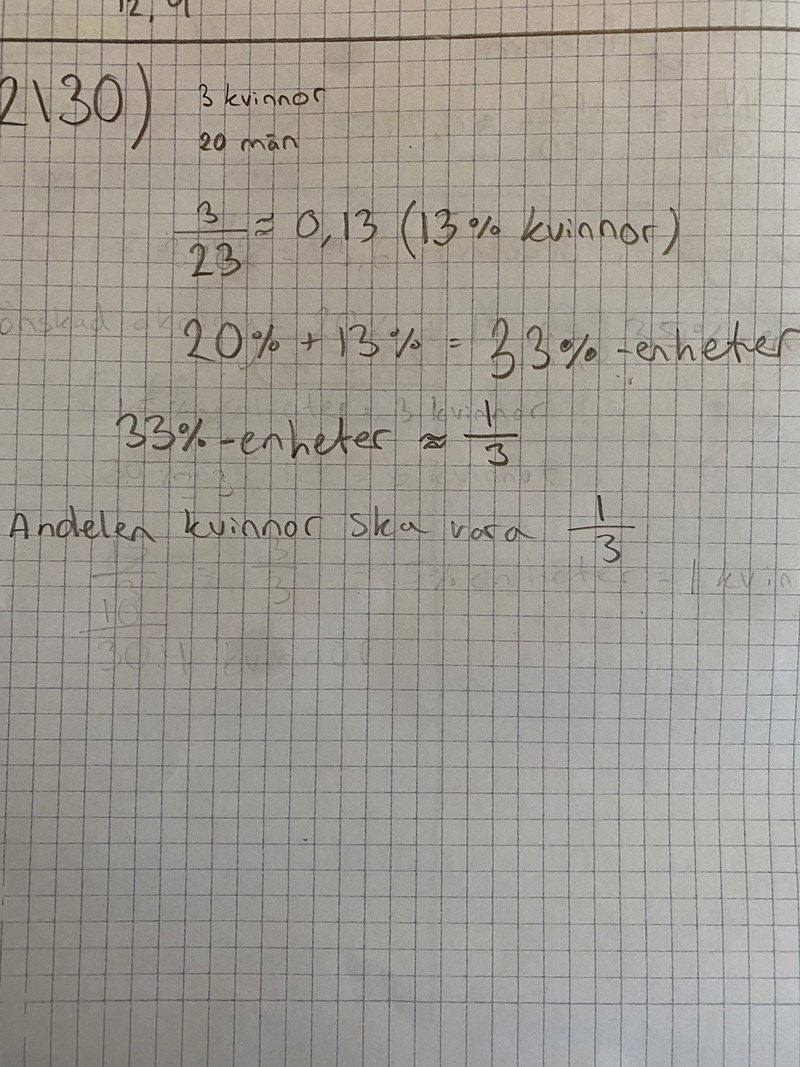 12,4
2130)
3 kvinnor
20 män
3/23 ≈ 0,13 (13% kvinnor)
20% + 13% = 33%-enheter
33%-enheter ≈ 1/3
Andelen kvinnor ska vara 1/3